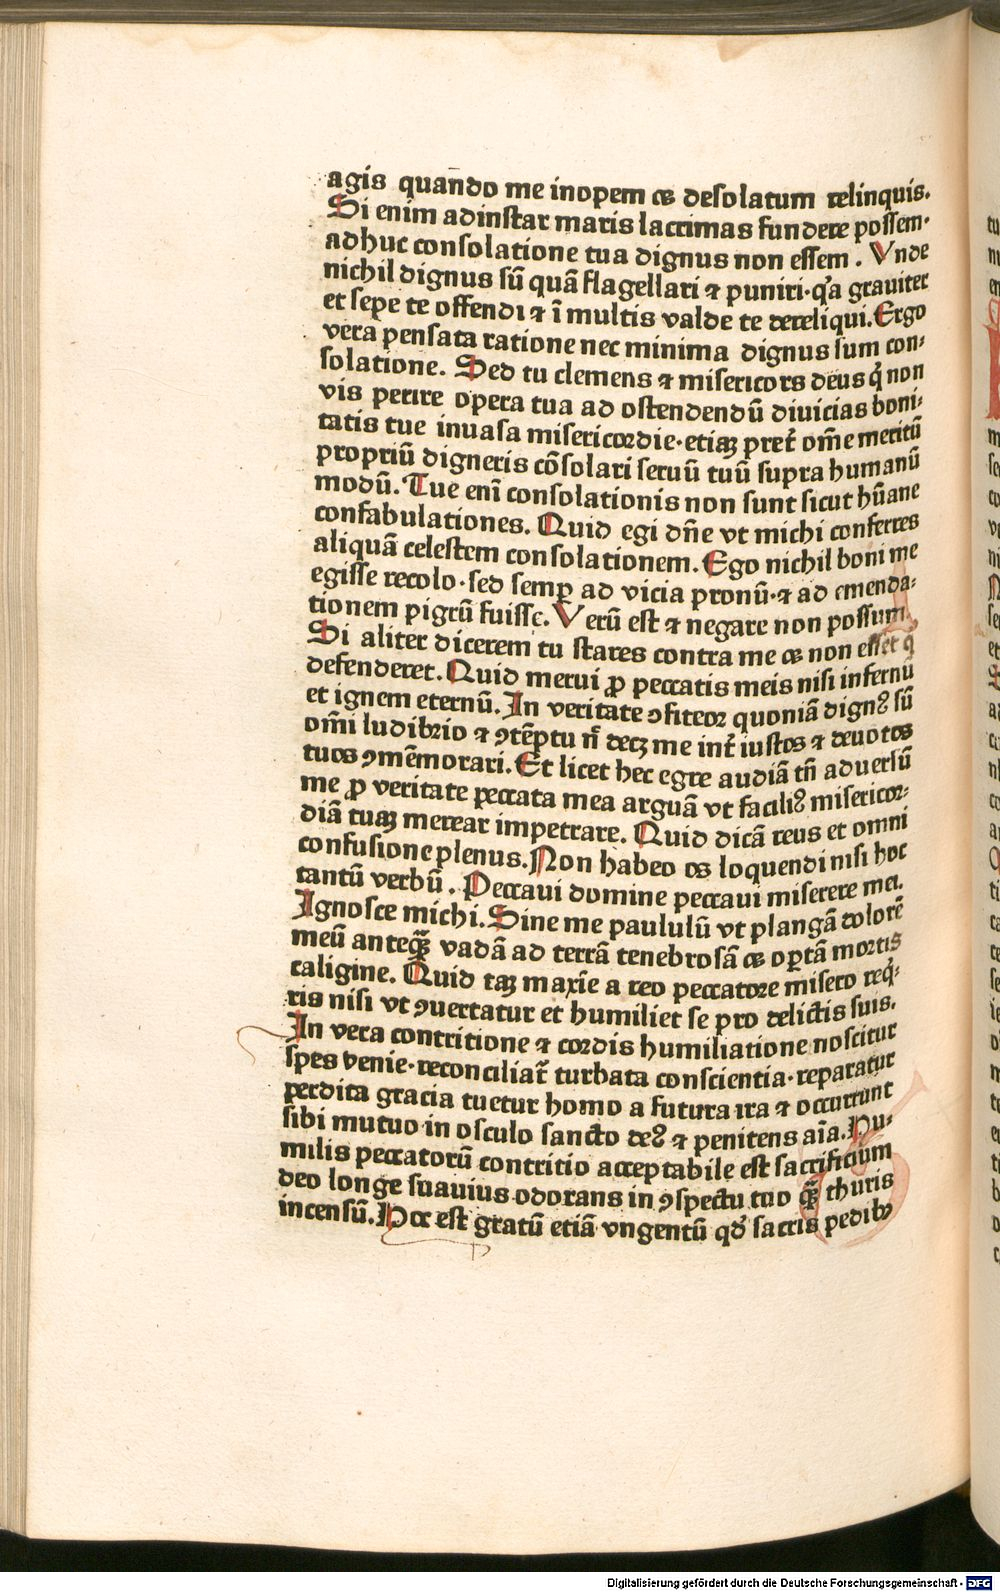 agis quando me inopem et desolatum relinquis.
Si enim adinstar maris lacrimas fundere possem·
adhuc consolatione tua dignus non essem . Vnde
nichil dignus sū quā flagellari ⁊ puniri·qꝛa grauiter
et sepe te offendi ⁊ ī multis valde te dereliqui. Ergo
vera pensata ratione nec minima dignus sum con⸗
solatione. Sed tu clemens ⁊ misericors deus q̇ non
vis perire opera tua ad ostendendū diuicias boni⸗
tatis tue inuasa misericordie·etiaꝫ pret̄ om̄e meritū
propriū digneris cōsolari seruū tuū supra humanū
modū. Tue eni̅ consolationis non sunt sicut hūane
confabulationes. Quid egi dn̄e vt michi conferres
aliquā celestem consolationem. Ego nichil boni me
egisse recolo·sed semꝑ ad vicia pronū·⁊ ad emenda⸗
tionem pigrū fuisse. Verū est ⁊ negare non possum.
Si aliter dicerem tu stares contra me et non esset q̇
defenderet. Quid merui ꝓ peccatis meis nisi infernū
et ignem eternū. In veritate ꝯfiteor quoniā dignꝰ sū
om̄i ludibrio ⁊ ꝯtēptu n̄ decꝫ me int̄ iustos ⁊ deuotos
tuos ꝯmēmorari. Et licet hec egre audiā tn̄ aduersū
me ꝓ veritate peccata mea arguā vt faciliꝰ misericor⸗
diā tuaꝫ merear impetrare. Quid dicā reus et omni
confusione plenus. Non habeo os loquendi nisi hoc
tantū verbū . Peccaui domine peccaui miserere mei.
Ignosce michi. Sine me paululū vt plangā dolorē
meū anteqꝫ̄ vadā ad terrā tenebrosā et oꝑtā mortis
caligine. Quid taꝫ maxīe a reo peccatore misero req̇⸗
ris nisi vt ꝯuertatur et humiliet se pro delictis suis.
In vera contritione ⁊ cordis humiliatione noscitur
spes venie·reconciliat̄ turbata conscientia·reparatur
perdita gracia tuetur homo a futura ira ⁊ occurrunt
sibi mutuo in osculo sancto deꝰ ⁊ penitens aīa. Hu⸗
milis peccatorū contritio acceptabile est sacrificium
deo longe suauius odorans in ꝯspectu tuo qꝫ̄ thuris
incensū. Hoc est gratū etiā vngentū qd̄ sacris pedibꝰ
Digitalisierung gefördert durch die Deutsche Forschungsgemeinschaft - DFG